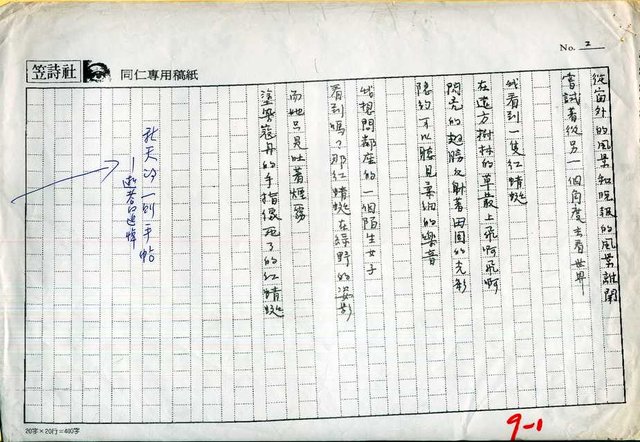 No. 2
笠詩社 同仁專用稿紙
從窗外的風景和晚報的風景離開
嘗試著從另一個角度去看世界
我看到一隻紅蜻蜓
在遠方樹林的草叢上飛啊飛啊
閃亮的翅膀反射著田園的光彩
隱約可以聽見柔細的樂音
我想問鄰座的一個陌生女子
看到嗎?那紅蜻蜓在綠野的姿影
而她只是吐著煙霧
塗著蔻丹的手指像死了的紅蜻蜓
秋天的一則手帖
20字×20行=400字
9-1